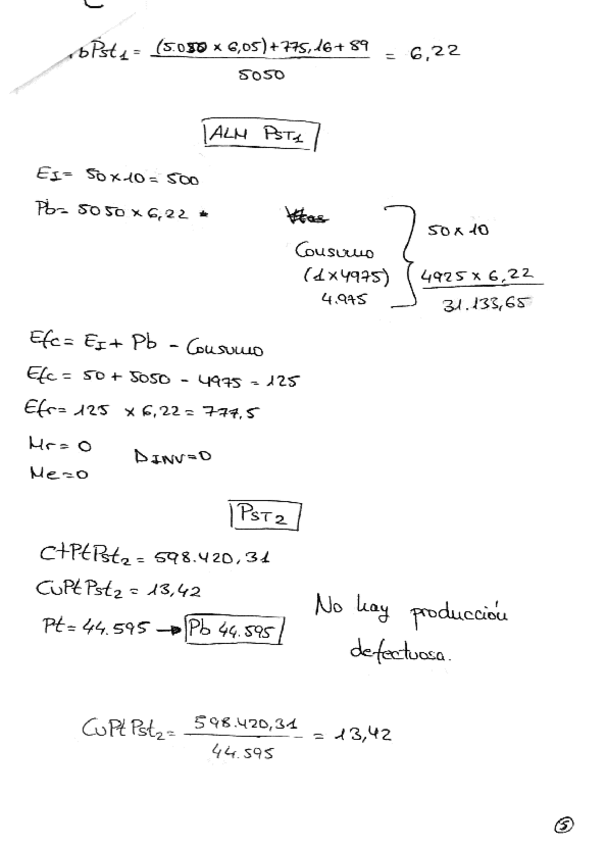 bPst1 = (5.050 x 6,05) + 775,16 + 89 / 5050 = 6,22
ALM PST1
EI = 50 x 10 = 500
Pb = 5050 x 6,22 *
Vtas
Consumo
(1 x 4975)
4.975
50 x 10
4925 x 6,22
31.133,65
Efc = EI + Pb - Consumo
Efc = 50 + 5050 - 4975 = 125
Efr = 125 x 6,22 = 777,5
Mr = 0
DINV = 0
Me = 0
PST2
CtPtPst2 = 598.420,31
CuPtPst2 = 13,42
Pt = 44.595 → Pb 44.595
No hay producción
defectuosa.
CuPtPst2 = 598.420,31 / 44.595 = 13,42
5